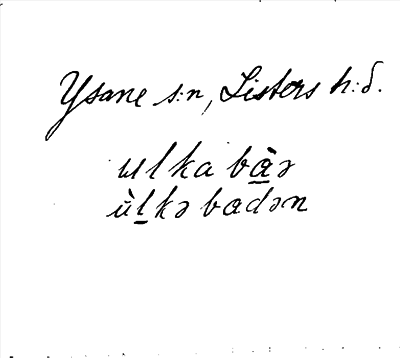 Ysane s:n, Listers h:d.
ulka bà̲ə
ùl̲kə badən